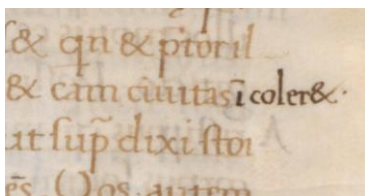 & qn̄ & p̄toril
& cām ciuitas ī coler&·
ut sup̄ dixi stoi
ēs Vos autem